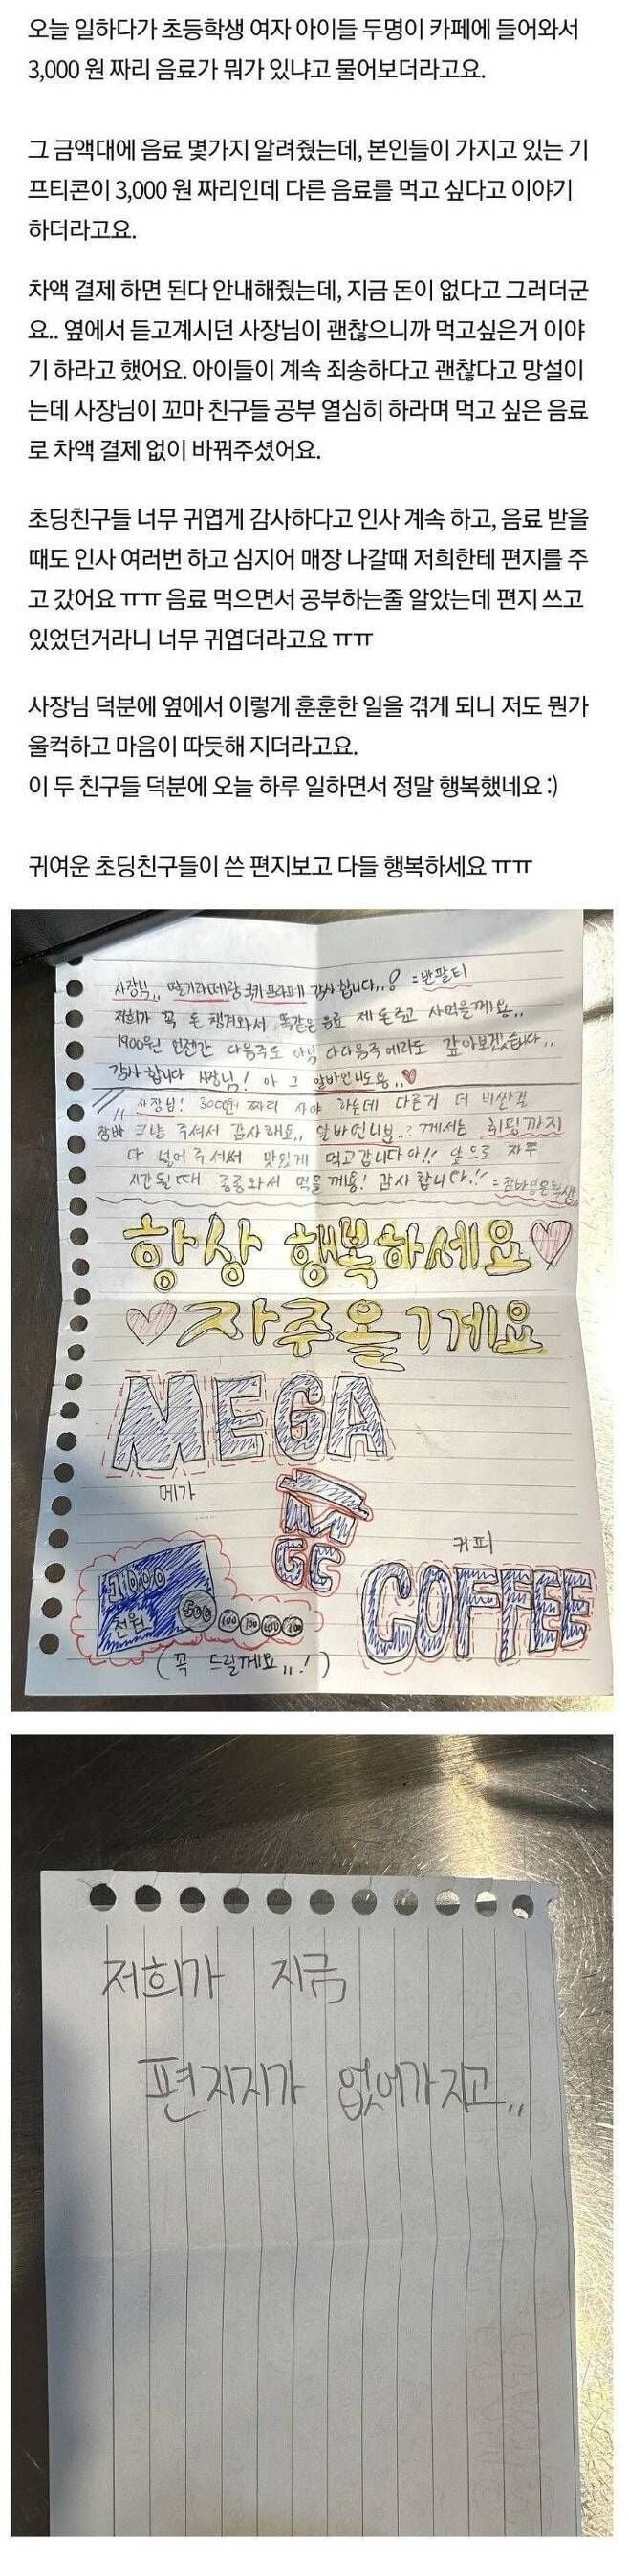 오늘 일하다가 초등학생 여자 아이들 두명이 카페에 들어와서
3,000 원 짜리 음료가 뭐가 있냐고 물어보더라고요.
그 금액대에 음료 몇가지 알려줬는데, 본인들이 가지고 있는 기
프티콘이 3,000 원 짜리인데 다른 음료를 먹고 싶다고 이야기
하더라고요.
차액 결제 하면 된다 안내해줬는데, 지금 돈이 없다고 그러더군
요.. 옆에서 듣고계시던 사장님이 괜찮으니까 먹고싶은거 이야
기 하라고 했어요. 아이들이 계속 죄송하다고 괜찮다고 망설이
는데 사장님이 꼬마 친구들 공부 열심히 하라며 먹고 싶은 음료
로 차액 결제 없이 바꿔주셨어요.
초딩친구들 너무 귀엽게 감사하다고 인사 계속 하고, 음료 받을
때도 인사 여러번 하고 심지어 매장 나갈때 저희한테 편지를 주
고 갔어요 ㅠㅠ 음료 먹으면서 공부하는줄 알았는데 편지 쓰고
있었던거라니 너무 귀엽더라고요 ㅠㅠ
사장님 덕분에 옆에서 이렇게 훈훈한 일을 겪게 되니 저도 뭔가
울컥하고 마음이 따듯해 지더라고요.
이 두 친구들 덕분에 오늘 하루 일하면서 정말 행복했네요 :)
귀여운 초딩친구들이 쓴 편지보고 다들 행복하세요 ㅠㅠ
사장님,, 딸기라떼랑 쿠키프라페 감사합니다..! =반팔티
저희가 꼭 돈 챙겨와서 똑같은 음료 제 돈주고 사먹을께요..
1900원 언젠간 다음주도 아님 다다음주에라도 갚아보겠습니다..
감사합니다 사장님! 아 그 알바언니도용..♥
사장님! 3000원 짜리 사야 하는데 다른거 더 비싼걸
그냥 주셔서 감사해요,, 알바언니분..? 께서는 휘핑까지
다 넣어주셔서 맛있게 먹고갑니다아!! 앞으로 자주
시간될때 종종와서 먹을께용! 감사합니다!!
항상 행복하세요♡
♡자주올게요
MEGA
메가
MGC
커피
COFFEE
1000
천원
500
100
(꼭 드릴께요,,!)
저희가 지금
편지지가 없어가지고,,